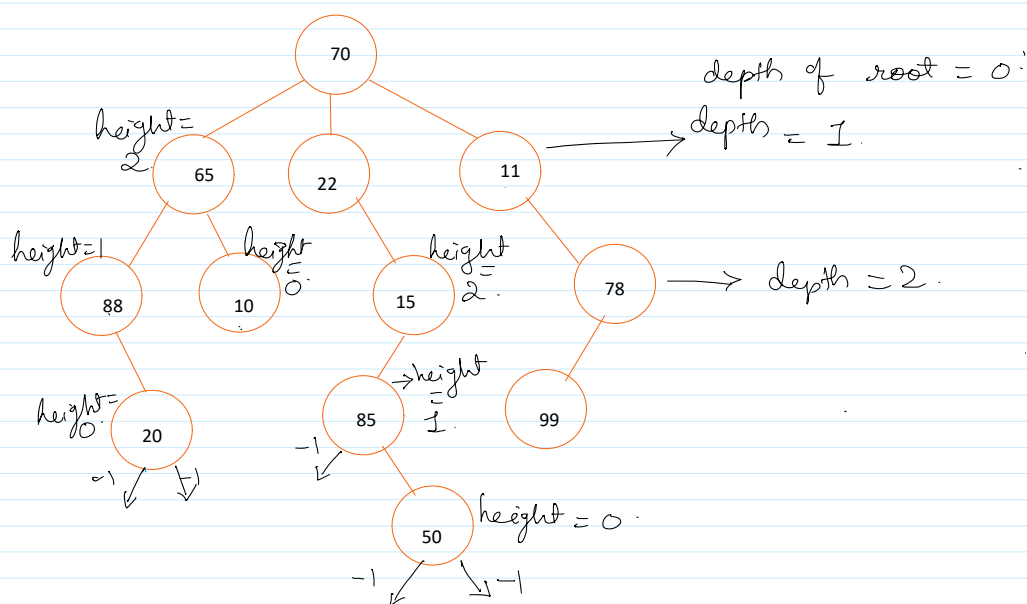 70
depth of root = 0.
height =
2.
65
22
11
depth = 1.
height = 1
88
height
=
0.
10
15
height
=
2.
78
depth = 2.
height =
0.
20
-1
-1
85
height
=
1.
-1
99
50
height = 0.
-1
-1